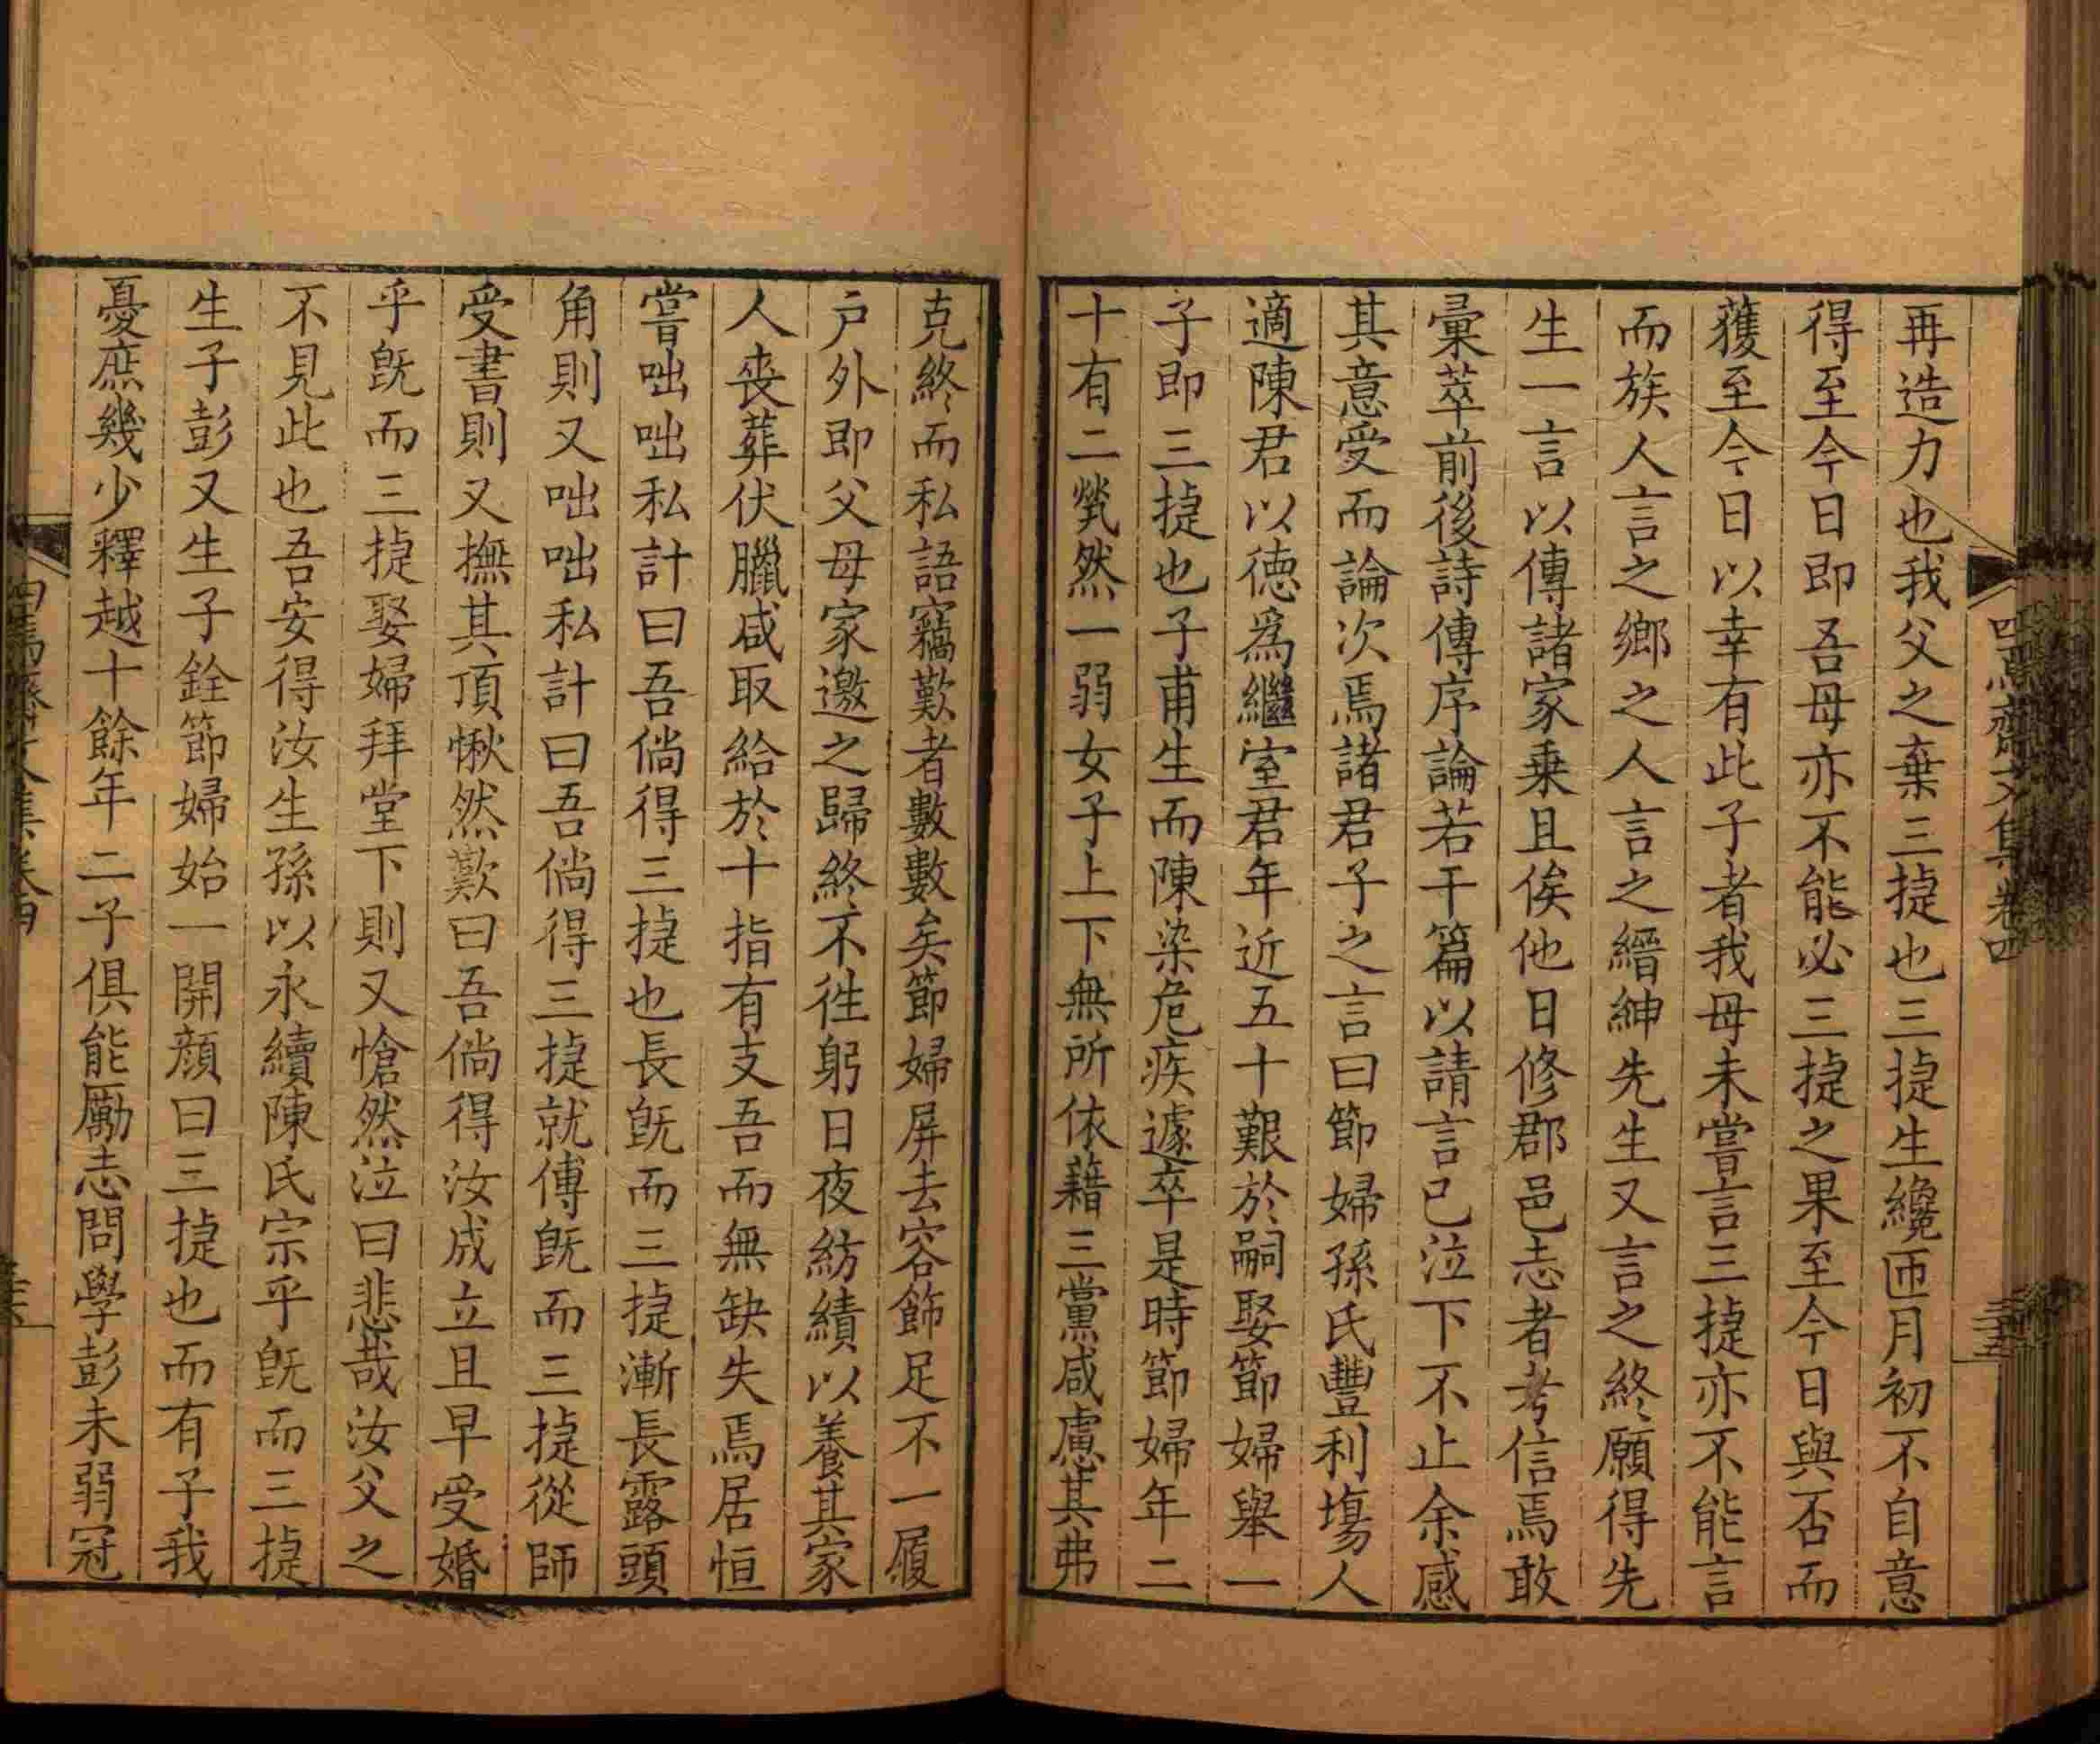 再造力也我父之棄三㨗也三㨗生纔匝月初不自意
得至今日即吾母亦不能必三㨗之果至今日與否而
獲至今日以幸有此子者我母未嘗言三㨗亦不能言
而族人言之鄉之人言之縉紳先生又言之終願得先
生一言以傳諸家乗且俟他日修郡邑志者考信焉敢
彙萃前後詩傳序論若干篇以請言已泣下不止余感
其意受而論次焉諸君子之言曰節婦孫氏豐利塲人
適陳君以德爲繼室君年近五十艱於嗣娶節婦舉一
子即三㨗也子甫生而陳染危疾遽卒是時節婦年二
十有二煢然一弱女子上下無所依藉三黨咸慮其弗
克終而私語竊歎者數數矣節婦屏去容飾足不一履
户外即父母家邀之歸終不徃躬日夜紡績以養其家
人喪葬伏臘咸取給於十指有支吾而無缺失焉居恒
嘗咄咄私計曰吾倘得三㨗也長旣而三㨗漸長露頭
角則又咄咄私計曰吾倘得三㨗就傅旣而三㨗從師
受書則又撫其頂愀然歎曰吾倘得汝成立且早受婚
乎旣而三㨗娶婦拜堂下則又愴然泣曰悲哉汝父之
不見此也吾安得汝生孫以永續陳氏宗乎旣而三㨗
生子彭又生子銓節婦始一開顔曰三㨗也而有子我
憂庶幾少釋越十餘年二子俱能勵志問學彭未弱冠